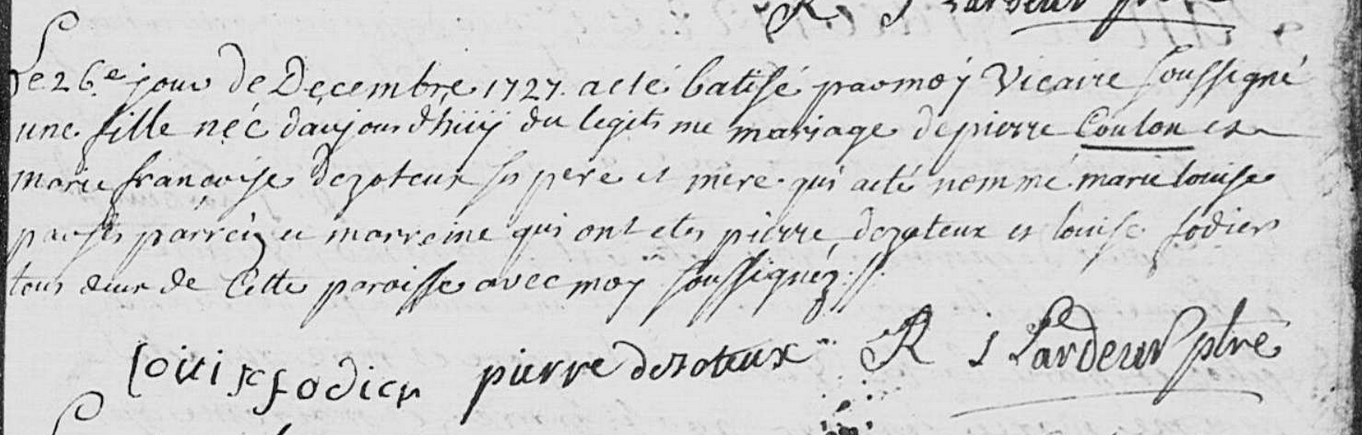 R J Lardeur ptre
Le 26e jour de Decembre 1727 a eté batisé par moy Vicaire soussigné
une fille neé d'aujourd'huy du legitime mariage de pierre Coulon et
marie françoise dezoteux ses pere et mere qui a eté nommé marie louise
par ses parrein et marreine qui ont etes pierre dezoteux et louise fodier
tous deux de Cette paroisse avec moy soussignéz
loiuise fodier pierre dezoteux R J Lardeur ptre